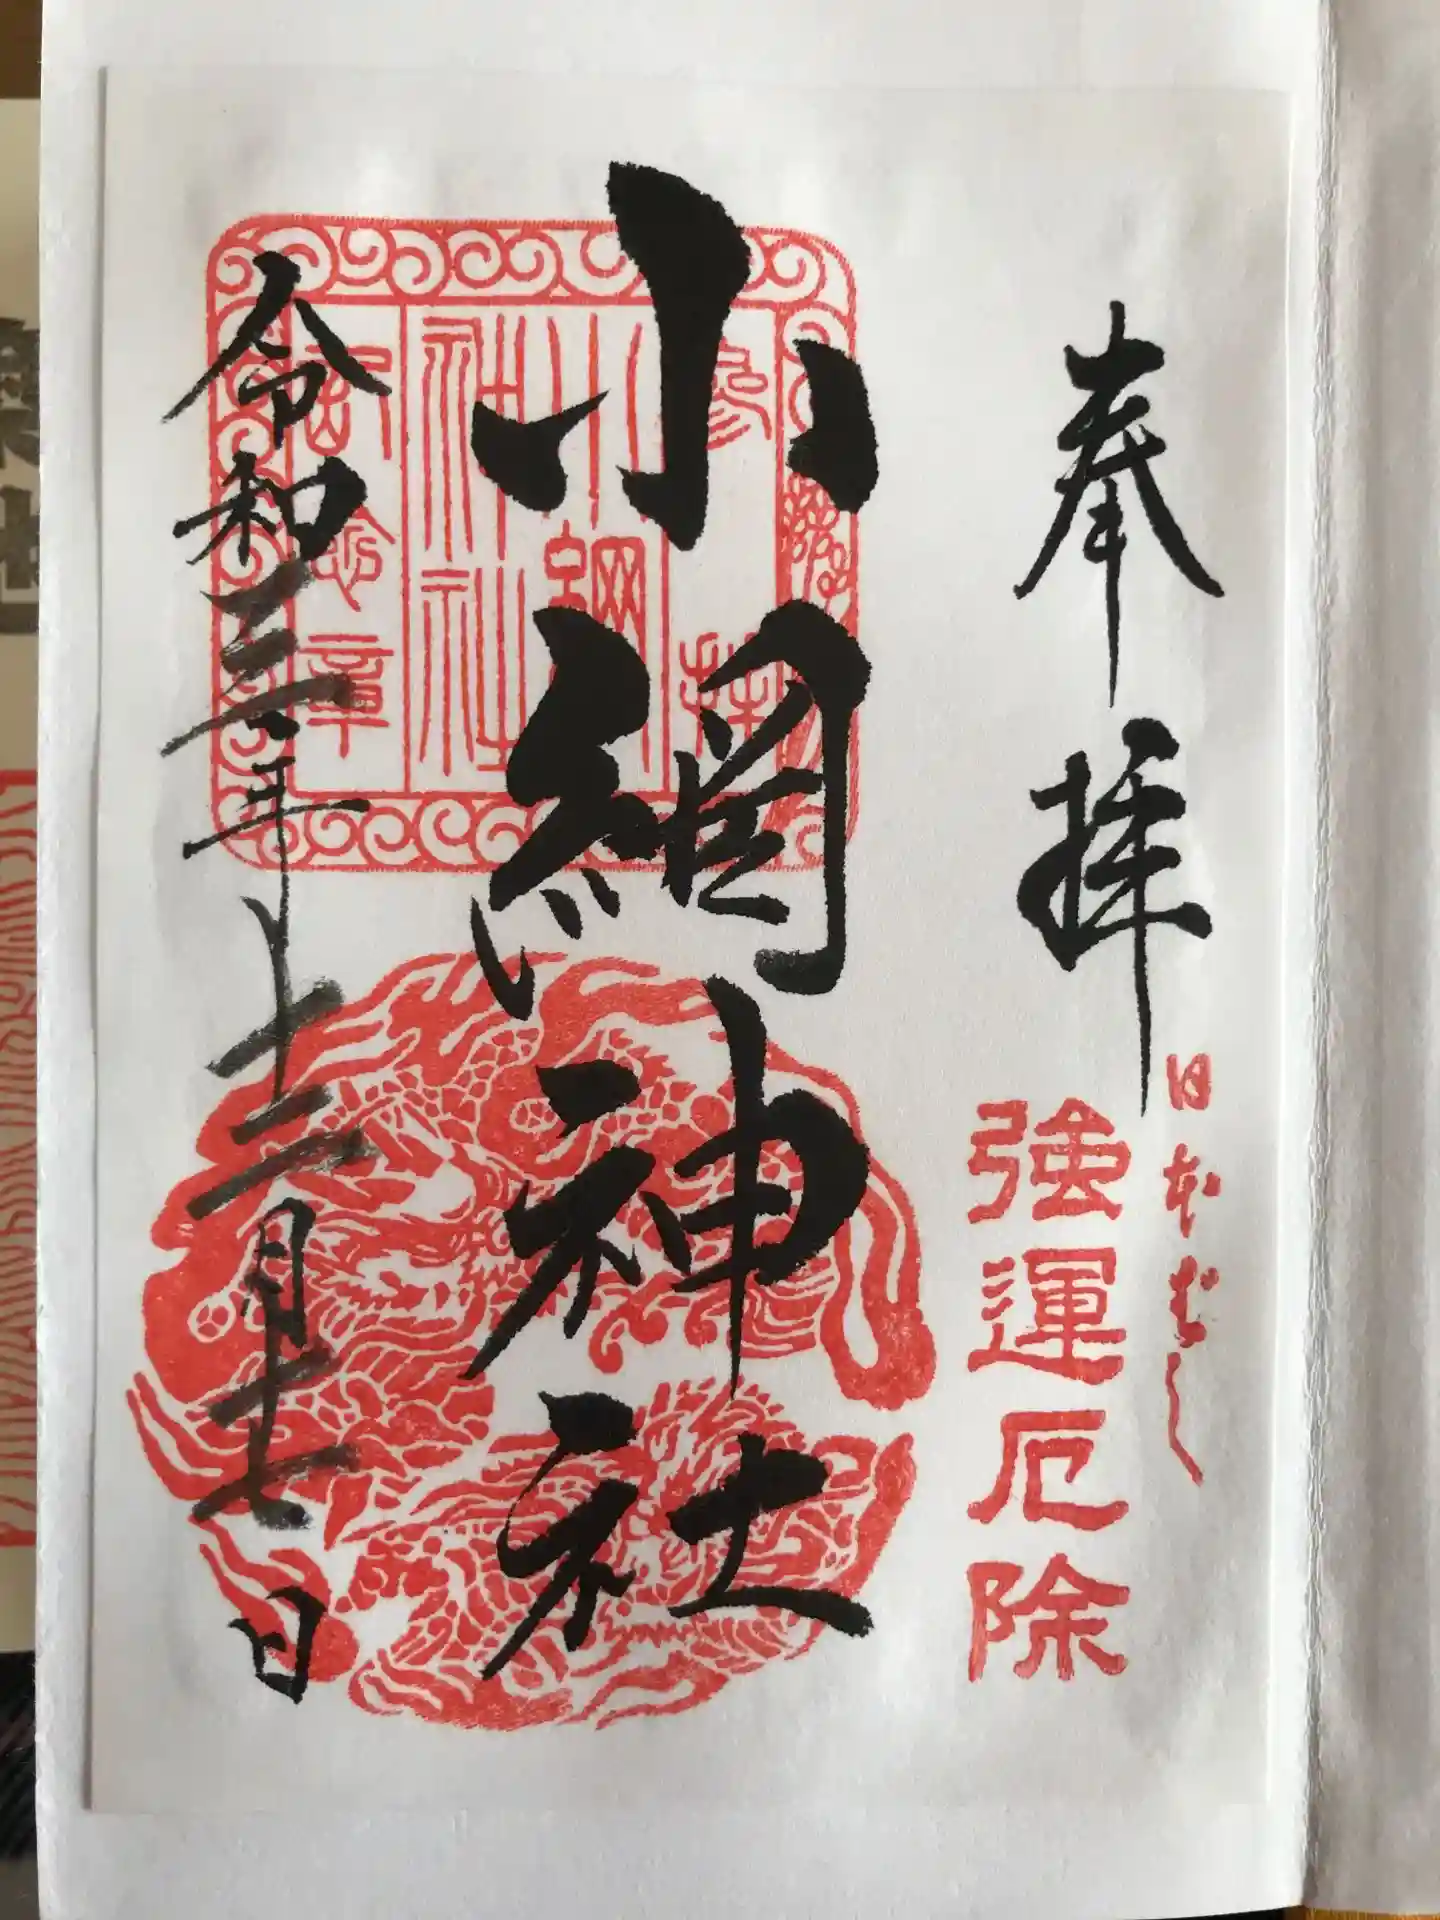 奉拝
日本ばし
強運厄除
小網神社
参拝
小網神社
記念章
令和三年十二月十七日